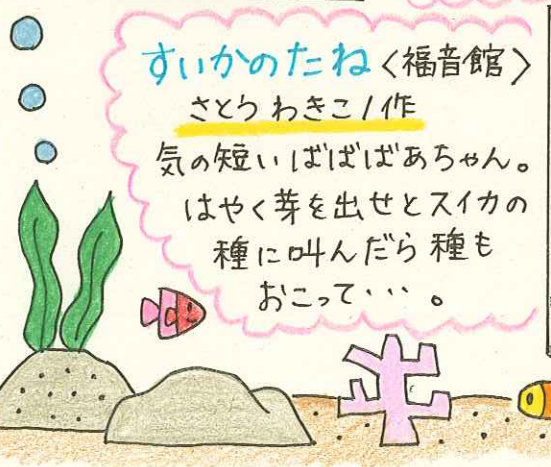 すいかのたね〈福音館〉
さとうわきこ/作
気の短いばばばあちゃん。
はやく芽を出せとスイカの
種に叫んだら種も
おこって・・・。